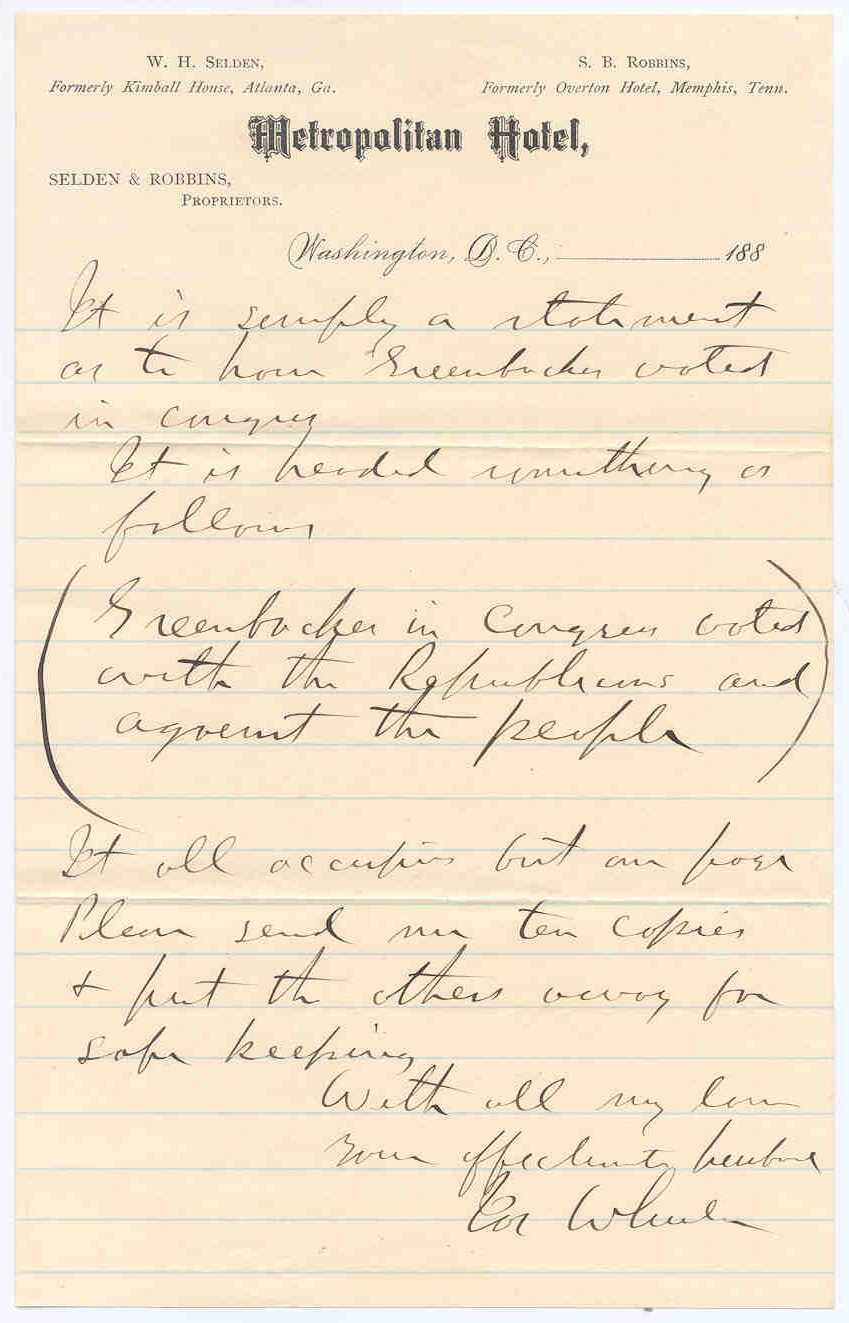 W. H. Selden,
Formerly Kimball House, Atlanta, Ga.
S. B. Robbins,
Formerly Overton Hotel, Memphis, Tenn.
Metropolitan Hotel,
SELDEN & ROBBINS,
Proprietors.
Washington, D. C., 188
It is simply a statement
as to how Greenbacker voted
in congress
It is headed something as
follows
(Greenbacker in Congress voted
with the Republicans and
against the people)
It all occupies but one page
Please send me ten copies
& put the others away for
safe keeping
With all my love
Your affectionate husband
Jos Wheeler